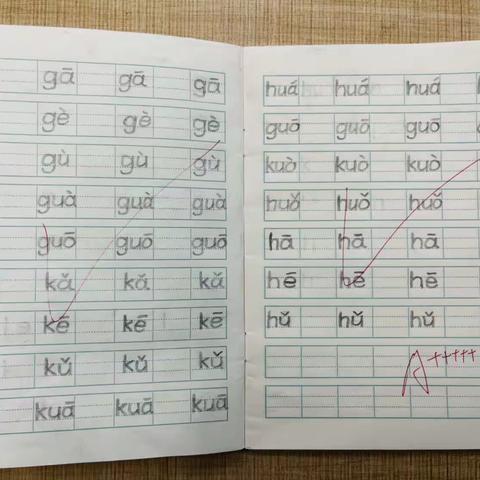 gā gā gā
gè gè gè
gù gù gù
guà guà guà
guō guō guō
kǎ kǎ kǎ
kē kē kē
kǔ kǔ kǔ
kuā kuā kuā
huá huá huá
guō guō guō
kuò kuò kuò
huǒ huǒ huǒ
hā hā hā
hē hē hē
hǔ hǔ hǔ
A+++++